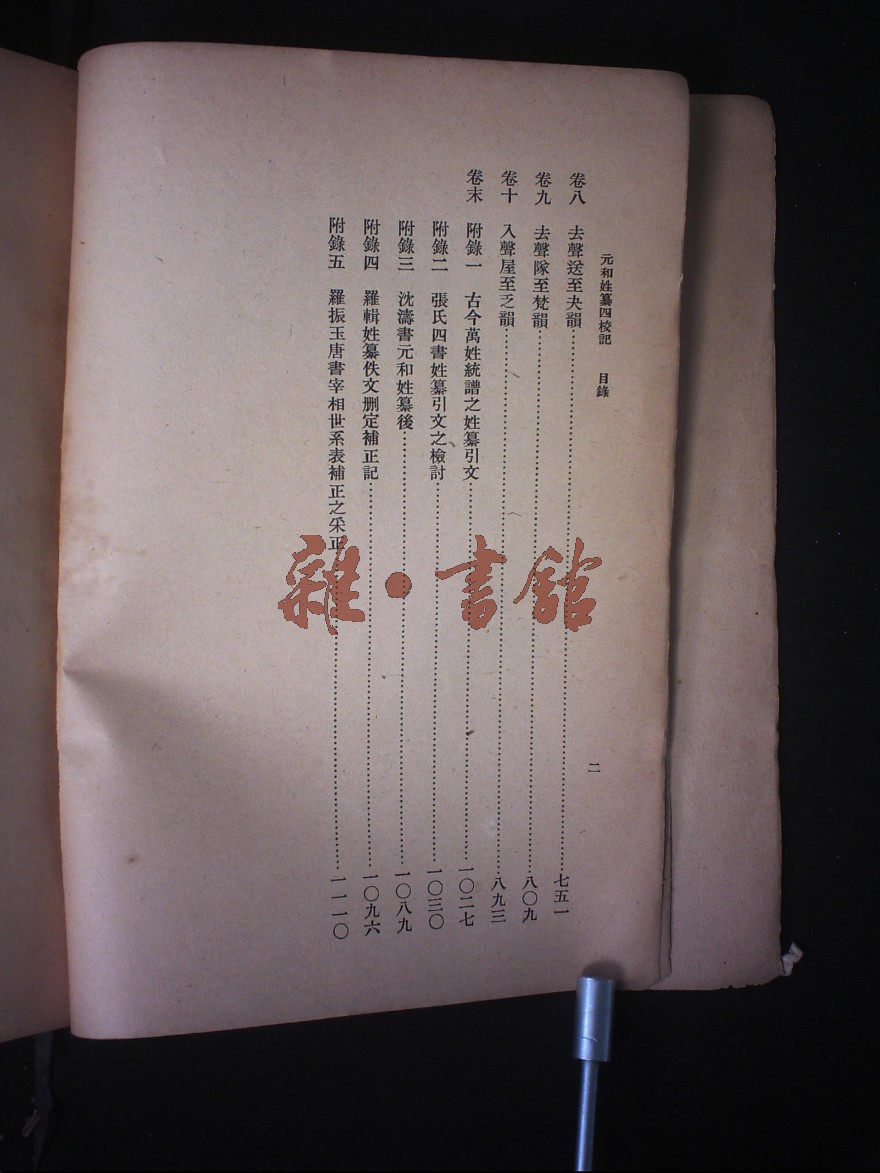 元和姓纂四校記 目錄
二
卷八 去聲送至夬韻……七五一
卷九 去聲隊至梵韻……八〇九
卷十 入聲屋至乏韻……八九三
卷末 附錄一 古今萬姓統譜之姓纂引文……一〇二七
附錄二 張氏四書姓纂引文之檢討……一〇三〇
附錄三 沈濤書元和姓纂後……一〇八九
附錄四 羅輯姓纂佚文刪定補正記……一〇九六
附錄五 羅振玉唐書宰相世系表補正之采正……一一一〇
雜·書館